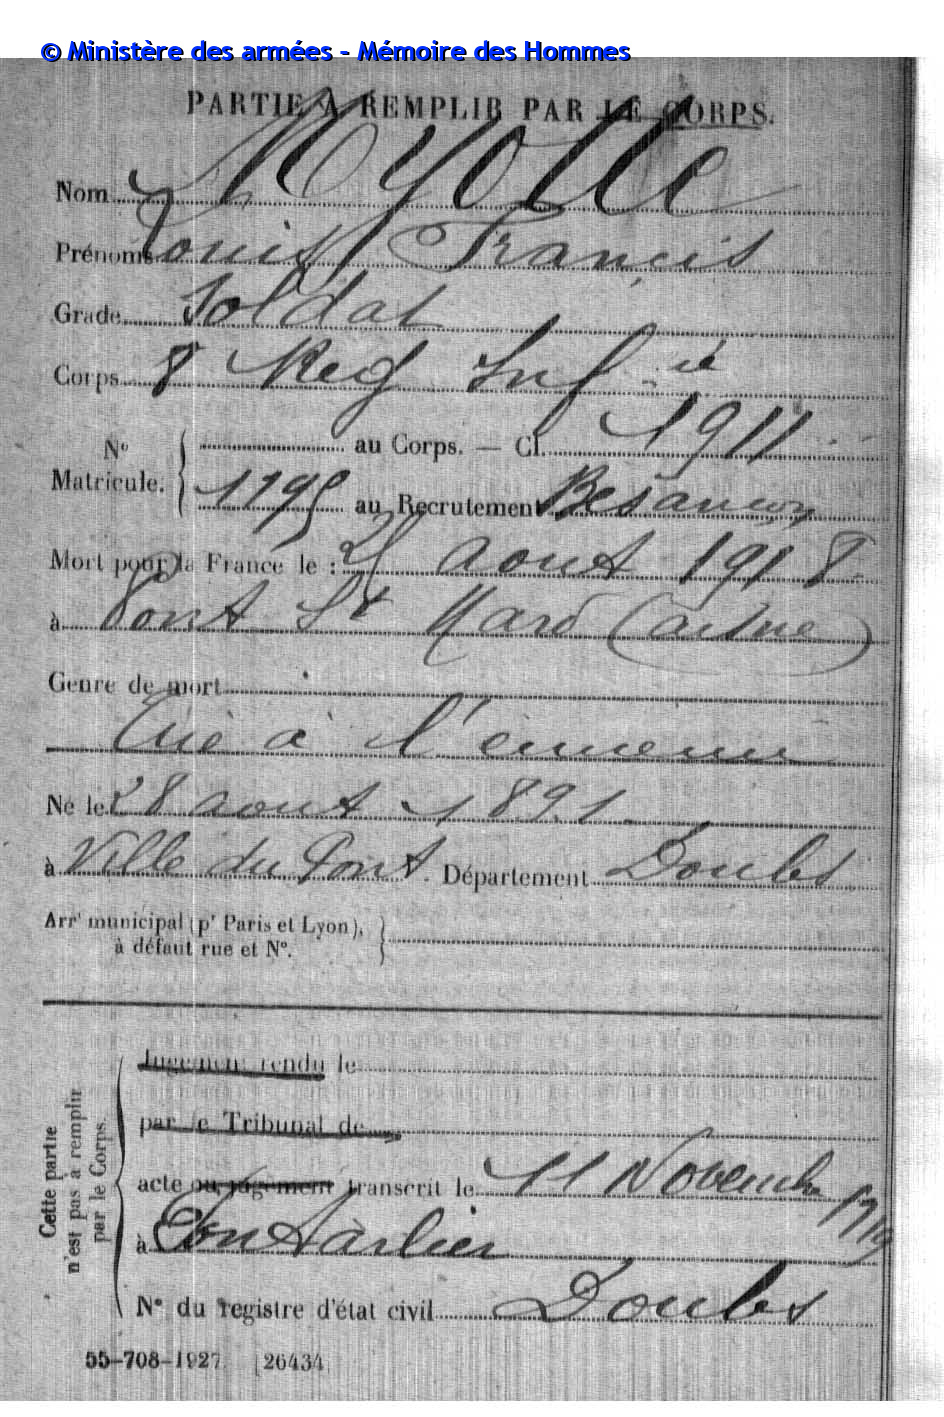 © Ministère des armées - Mémoire des Hommes
PARTIE A REMPLIR PAR LE CORPS.
Nom Myotte
Prénoms Louis Francis
Grade Soldat
Corps 8 Reg Inf ie
N° Matricule. { au Corps. — Cl. 1911
1195 au Recrutement Besançon
Mort pour la France le : août 1918.
à Pont St Mard (aisne)
Genre de mort
Tué à l'ennemi
Né le 28 aout 1891.
à Ville du Pont. Département Doubs
Arrt municipal (pr Paris et Lyon),
à défaut rue et N°.
Jugement rendu le
par le Tribunal de
acte ou jugement transcrit le 11 Novembre 1919
à Pontarlier
N° du registre d'état civil Doubs
Cette partie
n'est pas à remplir
par le Corps.
55-708-1927. [26434]